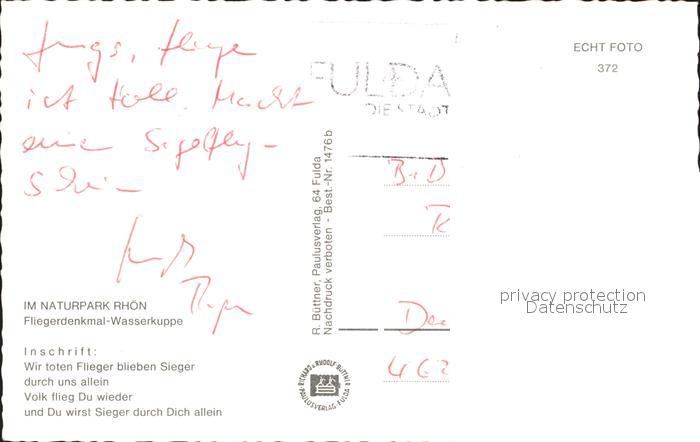 Jungs, fliege
ist toll. Macht
eine Segelflug-
Schein
Gruß
Papa
IM NATURPARK RHÖN
Fliegerdenkmal-Wasserkuppe
Inschrift:
Wir toten Flieger blieben Sieger
durch uns allein
Volk flieg Du wieder
und Du wirst Sieger durch Dich allein
R. Büttner, Paulusverlag, 64 Fulda
Nachdruck verboten - Best.-Nr. 1476b
RICHARD u. RUDOLF BÜTTNER
PAULUSVERLAG, FULDA
FULDA
DIE STADT
ECHT FOTO
372
462
privacy protection
Datenschutz